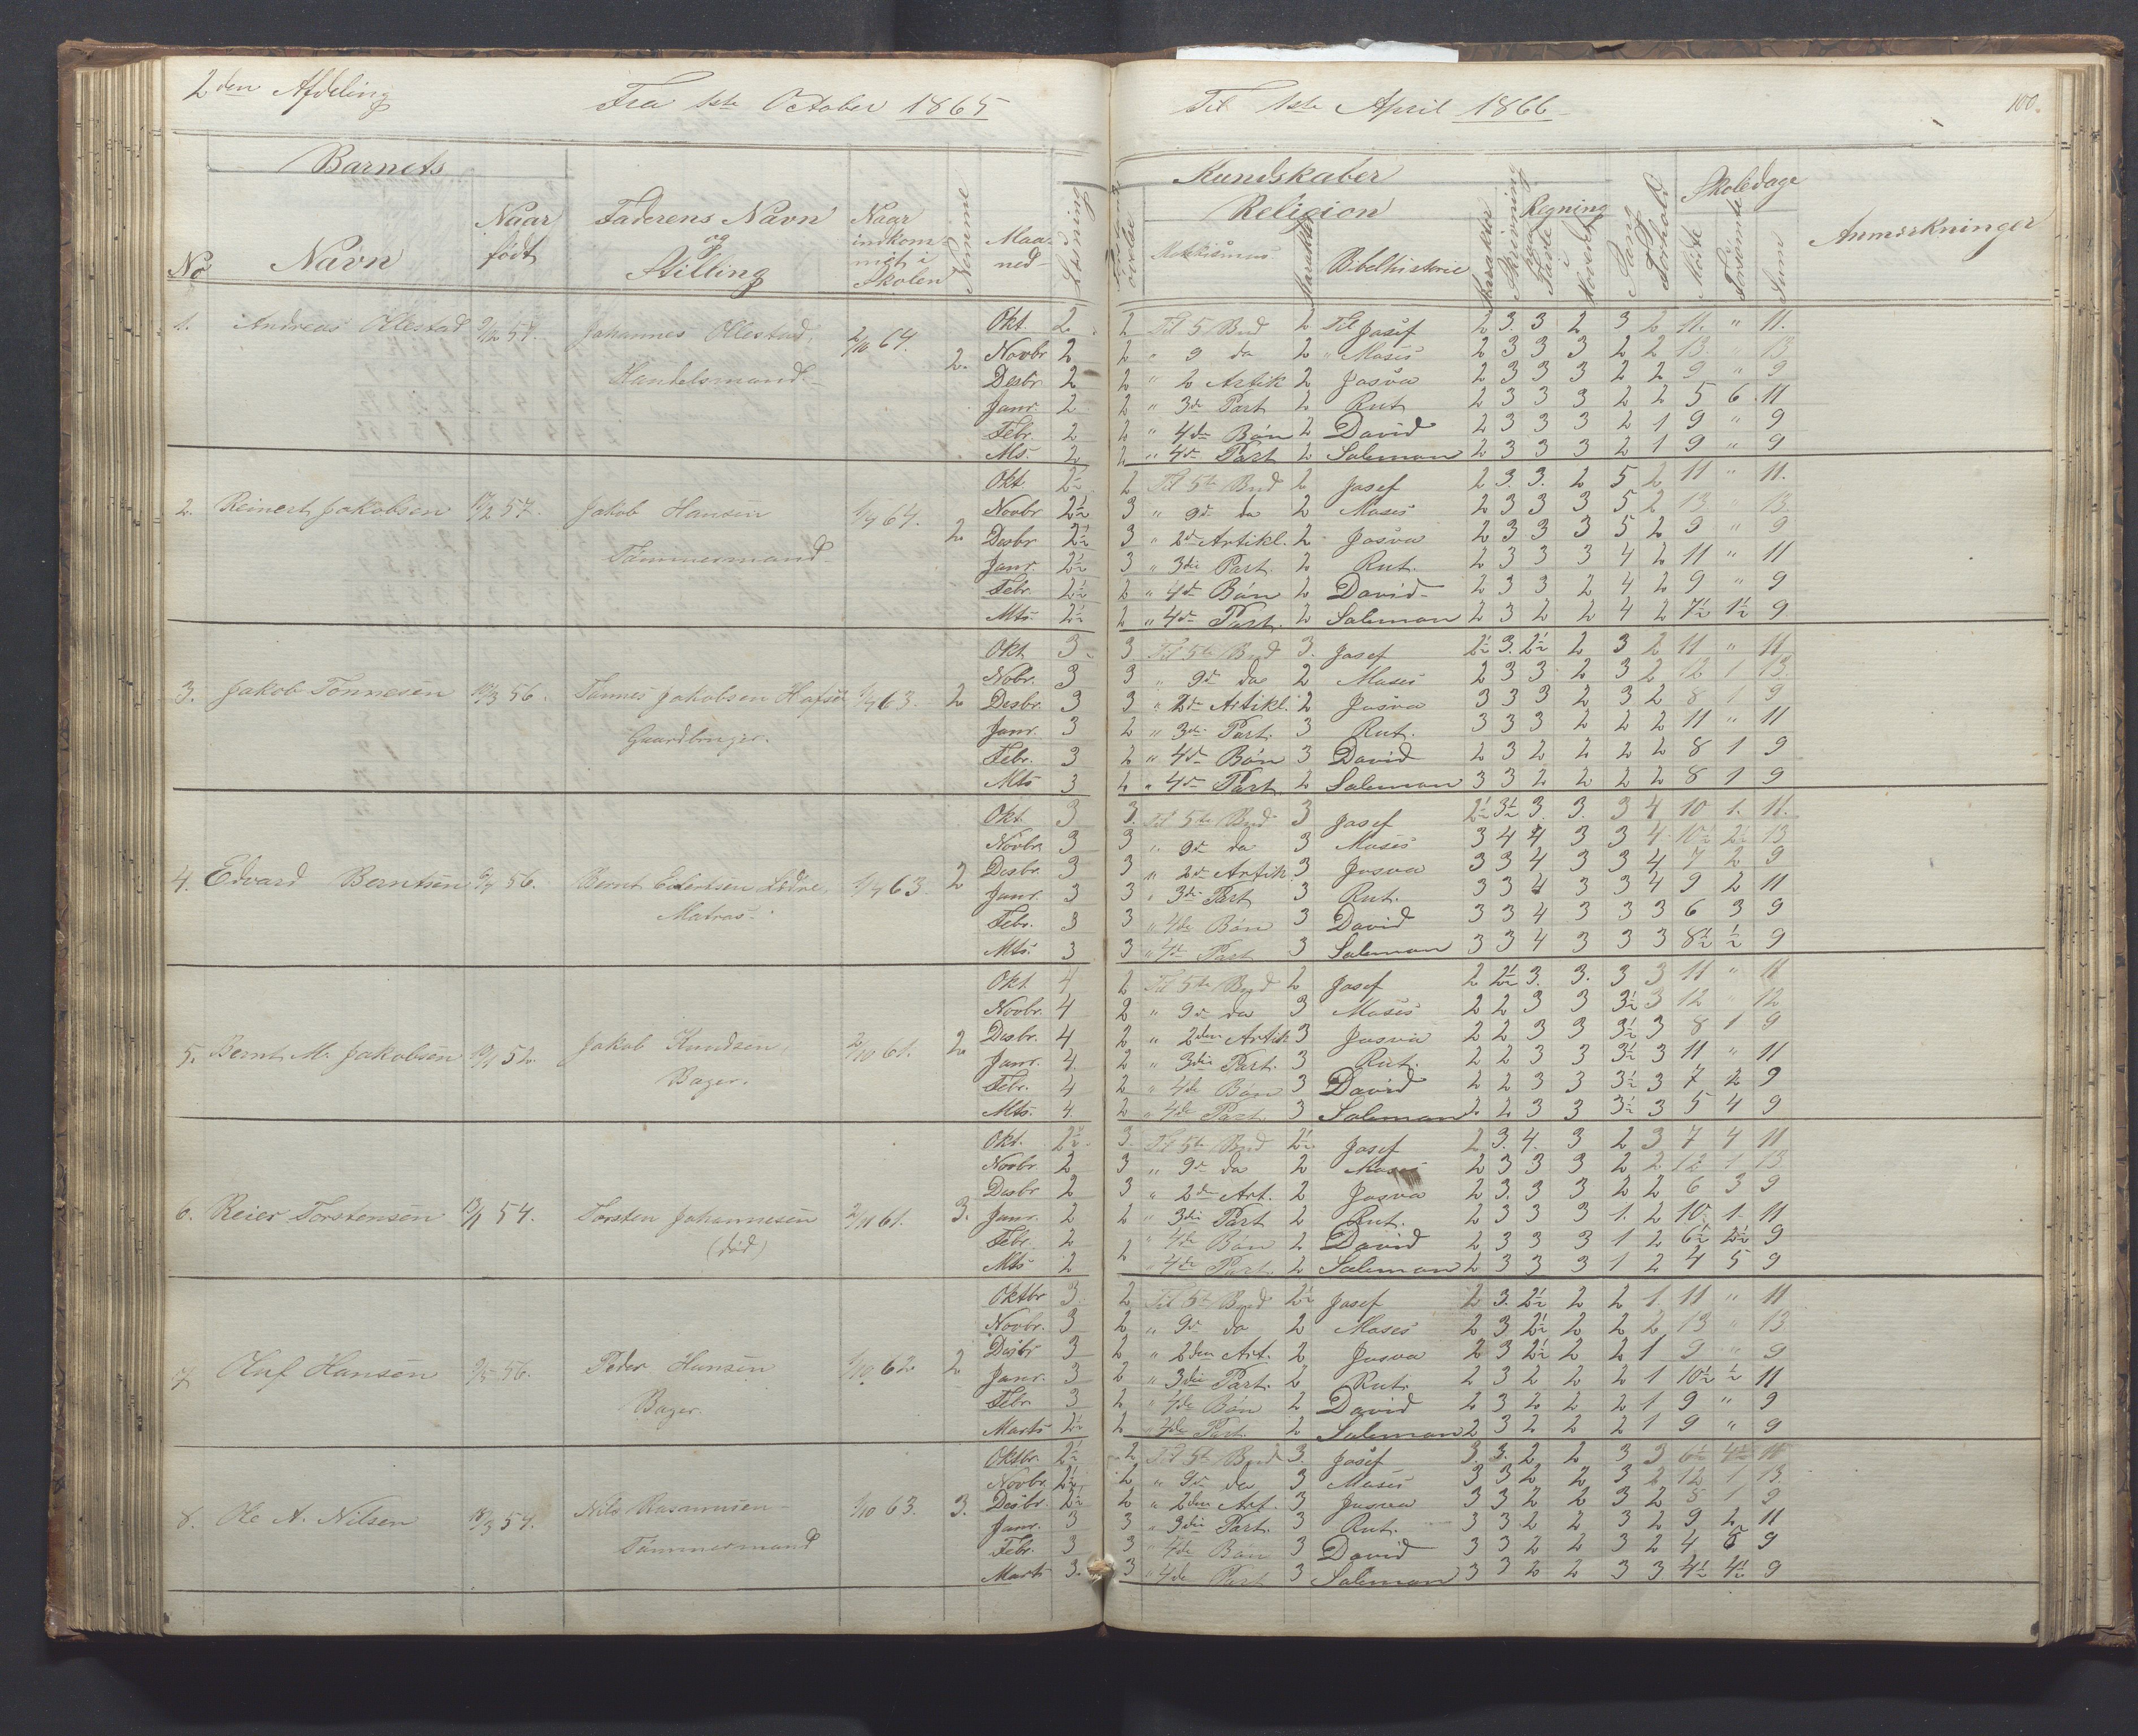 2den Afdeling Fra 1ste October 1865 Til 1ste April 1866 100.
Barnets Kundskaber
Religion Regning Skoledage
No Navn Naar født Faderens Navn og Stilling Naar indkommet i Skolen Nemme Maaned Læsning Katekismus Karakter Bibelhistorie Karakter Skrivning Tavle i Hovedet Sang Forhold Mødte Forsømte Sum Anmærkninger
1. Andreas Ollestad Johannes Ollestad, Handelsmand 2/10 64. 2.
Okt. 2 2 Til 5 Bud 2 Til Josef 2 3. 3 2 3 2 11. " 11.
Novbr 2 2 " 9 da 2 " Moses 2 3 3 3 2 2 13. " 13
Desbr. 2 2 " 2 Artik 2 Josva 2 3 3 3 2 2 9 " 9
Janr. 2 2 " 3di Part 2 Rut 2 3 3 3 2 2 5 6 11
Febr. 2 2 " 4de Bøn 2 David 2 3 3 3 2 1 9 " 9
Mts. 2 2 " 4de Part 2 Salomon 2 3 3 3 2 1 9 " 9
2. Reinert Jakobsen 57. Jakob Hansen Tømmermand 1/7 64. 2
Okt 2½ 2 Til 5te Bud 2 Josef 2 3. 3. 2 5 2 11 " 11.
Novbr 2½ 3 " 9de da 2 Moses 2 3 3 3 5 2 13 " 13.
Desbr 2½ 3 " 2de Artikl. 2 Josva 2 3 3 3 5 2 9 " 9
Janr. 2½ 3 " 3die Part. 2 Rut. 2 3 3 3 4 2 11 " 11
Febr. 2½ 2 " 4de Bøn 2 David 2 3 3 2 4 2 9 " 9
Mts. 2½ 2 " 4de Part. 2 Salomon 2 3 2 2 4 2 7½ 1½ 9.
3. Jakob Tønnesen 56. Tønnes Jakobsen Gaardbruger. 1/7 63. 2
Okt 3. 3. Til 5te Bud 3. Josef 2½ 3. 2½ 2 3 2 11 " 11.
Nobr. 3 3 " 9de da 2 Moses 2 3 3 2 3 2 12 1 13.
Desbr. 3 3 " 2de Artikl. 2 Josva 3 3 3 2 3 2 8 1 9
Janr. 3 2 " 3die Part. 3 Rut. 3 3 3 2 2 2 11 " 11
Febr. 3 2 " 4de Bøn 3 David 2 3 2 2 2 2 8 1 9
Mts 3 2 " 4de Part. 2 Salomon 3 3 2 2 2 2 8 1 9
4. Edvard Berntsen 56. Bernt Matros. 1/7 63. 2
Okt. 3 3. Til 5te Bud 3 Josef 2½ 3½ 3. 3. 3 4 10 1. 11.
Novbr. 3 3 " 9de da 3 Moses 3 4 4 3 3 4 10½ 2½ 13
Desbr. 3 3 " 2de Artik. 3 Josva 3 3 4 3 3 4 7 2 9
Janr. 3 3 " 3die Part 3 Rut. 3 3 4 3 3 4 9 2 11
Febr. 3 3 " 4de Bøn 3 David 3 3 4 3 3 3 6 3 9
Mts. 3 3 " 4de Part 3 Salomon 3 3 4 3 3 3 8½ ½ 9
5. Bernt M. Jakobsen 52. Jakob Knudsen, Bager. 2/10 61. 2
Okt 4 2 Til 5te Bud 2 Josef 2 2½ 3. 3. 3 3 11 " 11
Novbr. 4 2 " 9de da 3 Moses 2 2 3 3 3½ 3 12 " 12
Desbr. 4 2 " 2den Artik 3 Josva 2 2 3 3 3½ 3 8 1 9
Janr. 4 2 " 3die Part. 3 Rut. 2 2 3 3 3½ 3 11 " 11
Febr. 4 2 " 4de Bøn 3 David 2 2 3 3 3½ 3 7 2 9
Mts. 4 2 " 4de Part 3 Salomon 2 2 3 3 3½ 3 5 4 9
6. Reier Torstensen 13/1 54. Torsten Johannesen (død) 61. 3.
Okt. 2½ 3. Til 5te Bud 2½ Josef 2 3. 4. 3 2 3 7 4 11
Novbr. 2 3 " 9de da 2 Moses 2 3 3 3 2 2 12 1 13
Desbr 2 3 " 2de Art. 2 Josva 2 3. 3 3 2 2 6 3 9
Janr. 2 2 " 3die Part 2 Rut. 2 3 3 3 1. 2 10. 1. 11
Febr. 2 " 4de Bøn 2 David 2 3 3 3 1 2 6½ 2½ 9
Mts 2 2 " 4de Part 2 Salomon 2 3 3 3 1 2 4 5 9
7. Oluf Hansen 56. Peder Hansen Bager. 1/10 62 2
Oktbr 3. 2 Til 5te Bud 2½ Josef 2 3. 2½ 2 2 1. 11 " 11
Novbr. 3 2 " 9de da 2 Moses 2 3 2½ 2 2 2 13 " 13
Desbr 3 2 " 2den Art. 2 Josva 2 3 2½ 2 2 1 9 " 9
Janr. 3 2 " 3die Part. 2 Rut. 2 3 2 2 2 1 10½ ½ 11
Febr. 3 2 " 4de Bøn 2 David 2 3 2 2 2 1 9 " 9
Marts 2½ 2 " 4de Part. 2 Salomon 2 3 2 2 2 1 9 " 9
8. Ole A. Nilsen Nils Rasmussen Tømmermand 1/10 63. 3.
Oktbr. 2½ 2. Til 5te Bud 3. Josef 3. 3. 2 2 3 3 6½ 4½ 11
Novbr. 2½ 2 " 9de da 3 Moses 3 3 2 2 3 2 12 1. 13.
Desbr. 2½ 2 " 2den Art. 3 Josva 3 3 2 2 3 2 8 1 9
Janr. 3 3 " 3die Part. 3 Rut. 3 3 2 2 3 2 9 2 11
Febr. 3 3 " 4de Bøn 3 David 3 3 2 2 3 2 4 5 9
Marts 3. 3 " 4de Part 3 Salomon 3 3 2 2 3 3 4½ 4½ 9